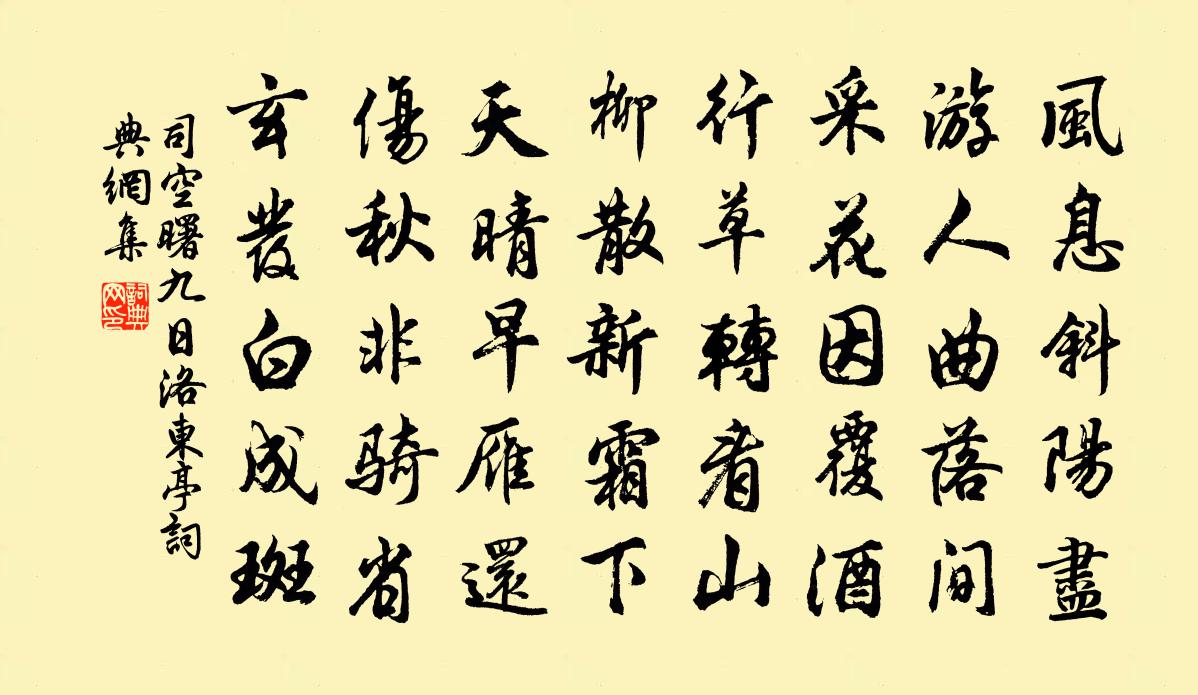 風息斜陽盡
游人曲落間
采花因覆酒
行草轉看山
柳散新霜下
天晴早雁還
傷秋非騎省
玄髮白成斑
司空曙九日洛東亭詞
典網集
詞典网印